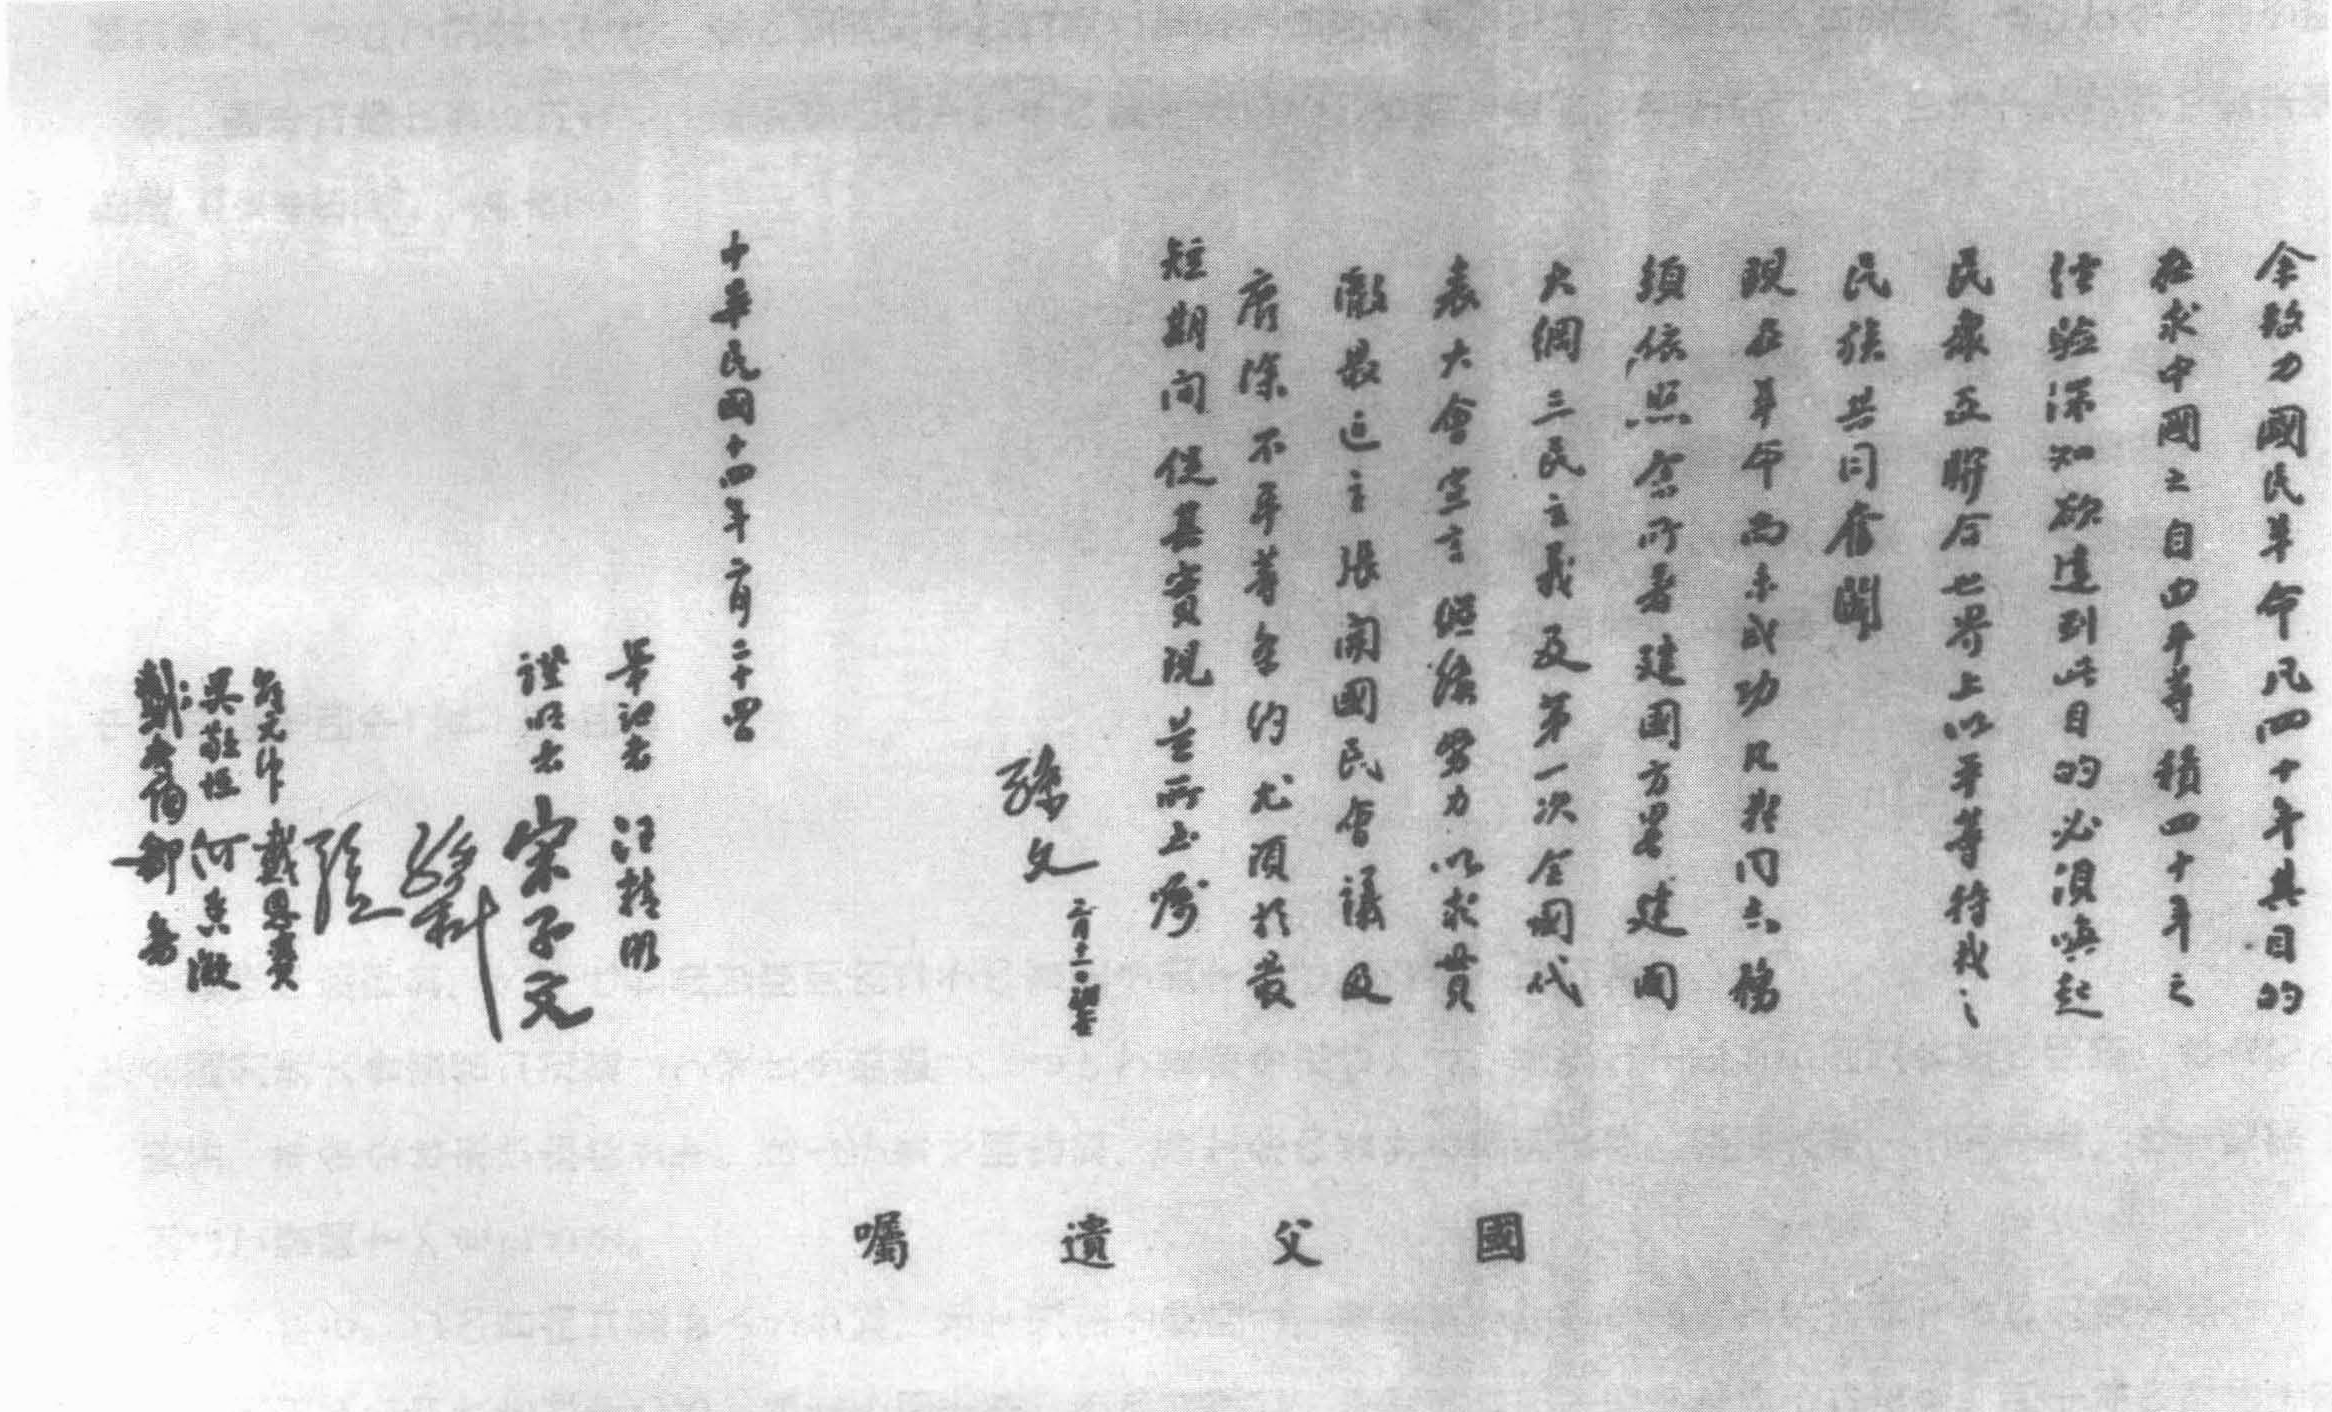 余致力國民革命凡四十年其目的
在求中國之自由平等積四十年之
經驗深知欲達到此目的必須喚起
民衆及聯合世界上以平等待我之
民族共同奮鬭
現在革命尚未成功凡我同志務
須依照余所著建國方畧建國
大綱三民主義及第一次全國代
表大會宣言繼續努力以求貫
澈最近主張開國民會議及
廢除不平等條約尤須於最
短期間促其實現是所至囑
孫文 三月十一日補簽
中華民國十四年二月二十四日
筆記者 汪精衛
證明者 宋子文
孫科
孔
戴恩賽
吳敬恒 何香凝
戴季陶 鄒魯
國父遺囑